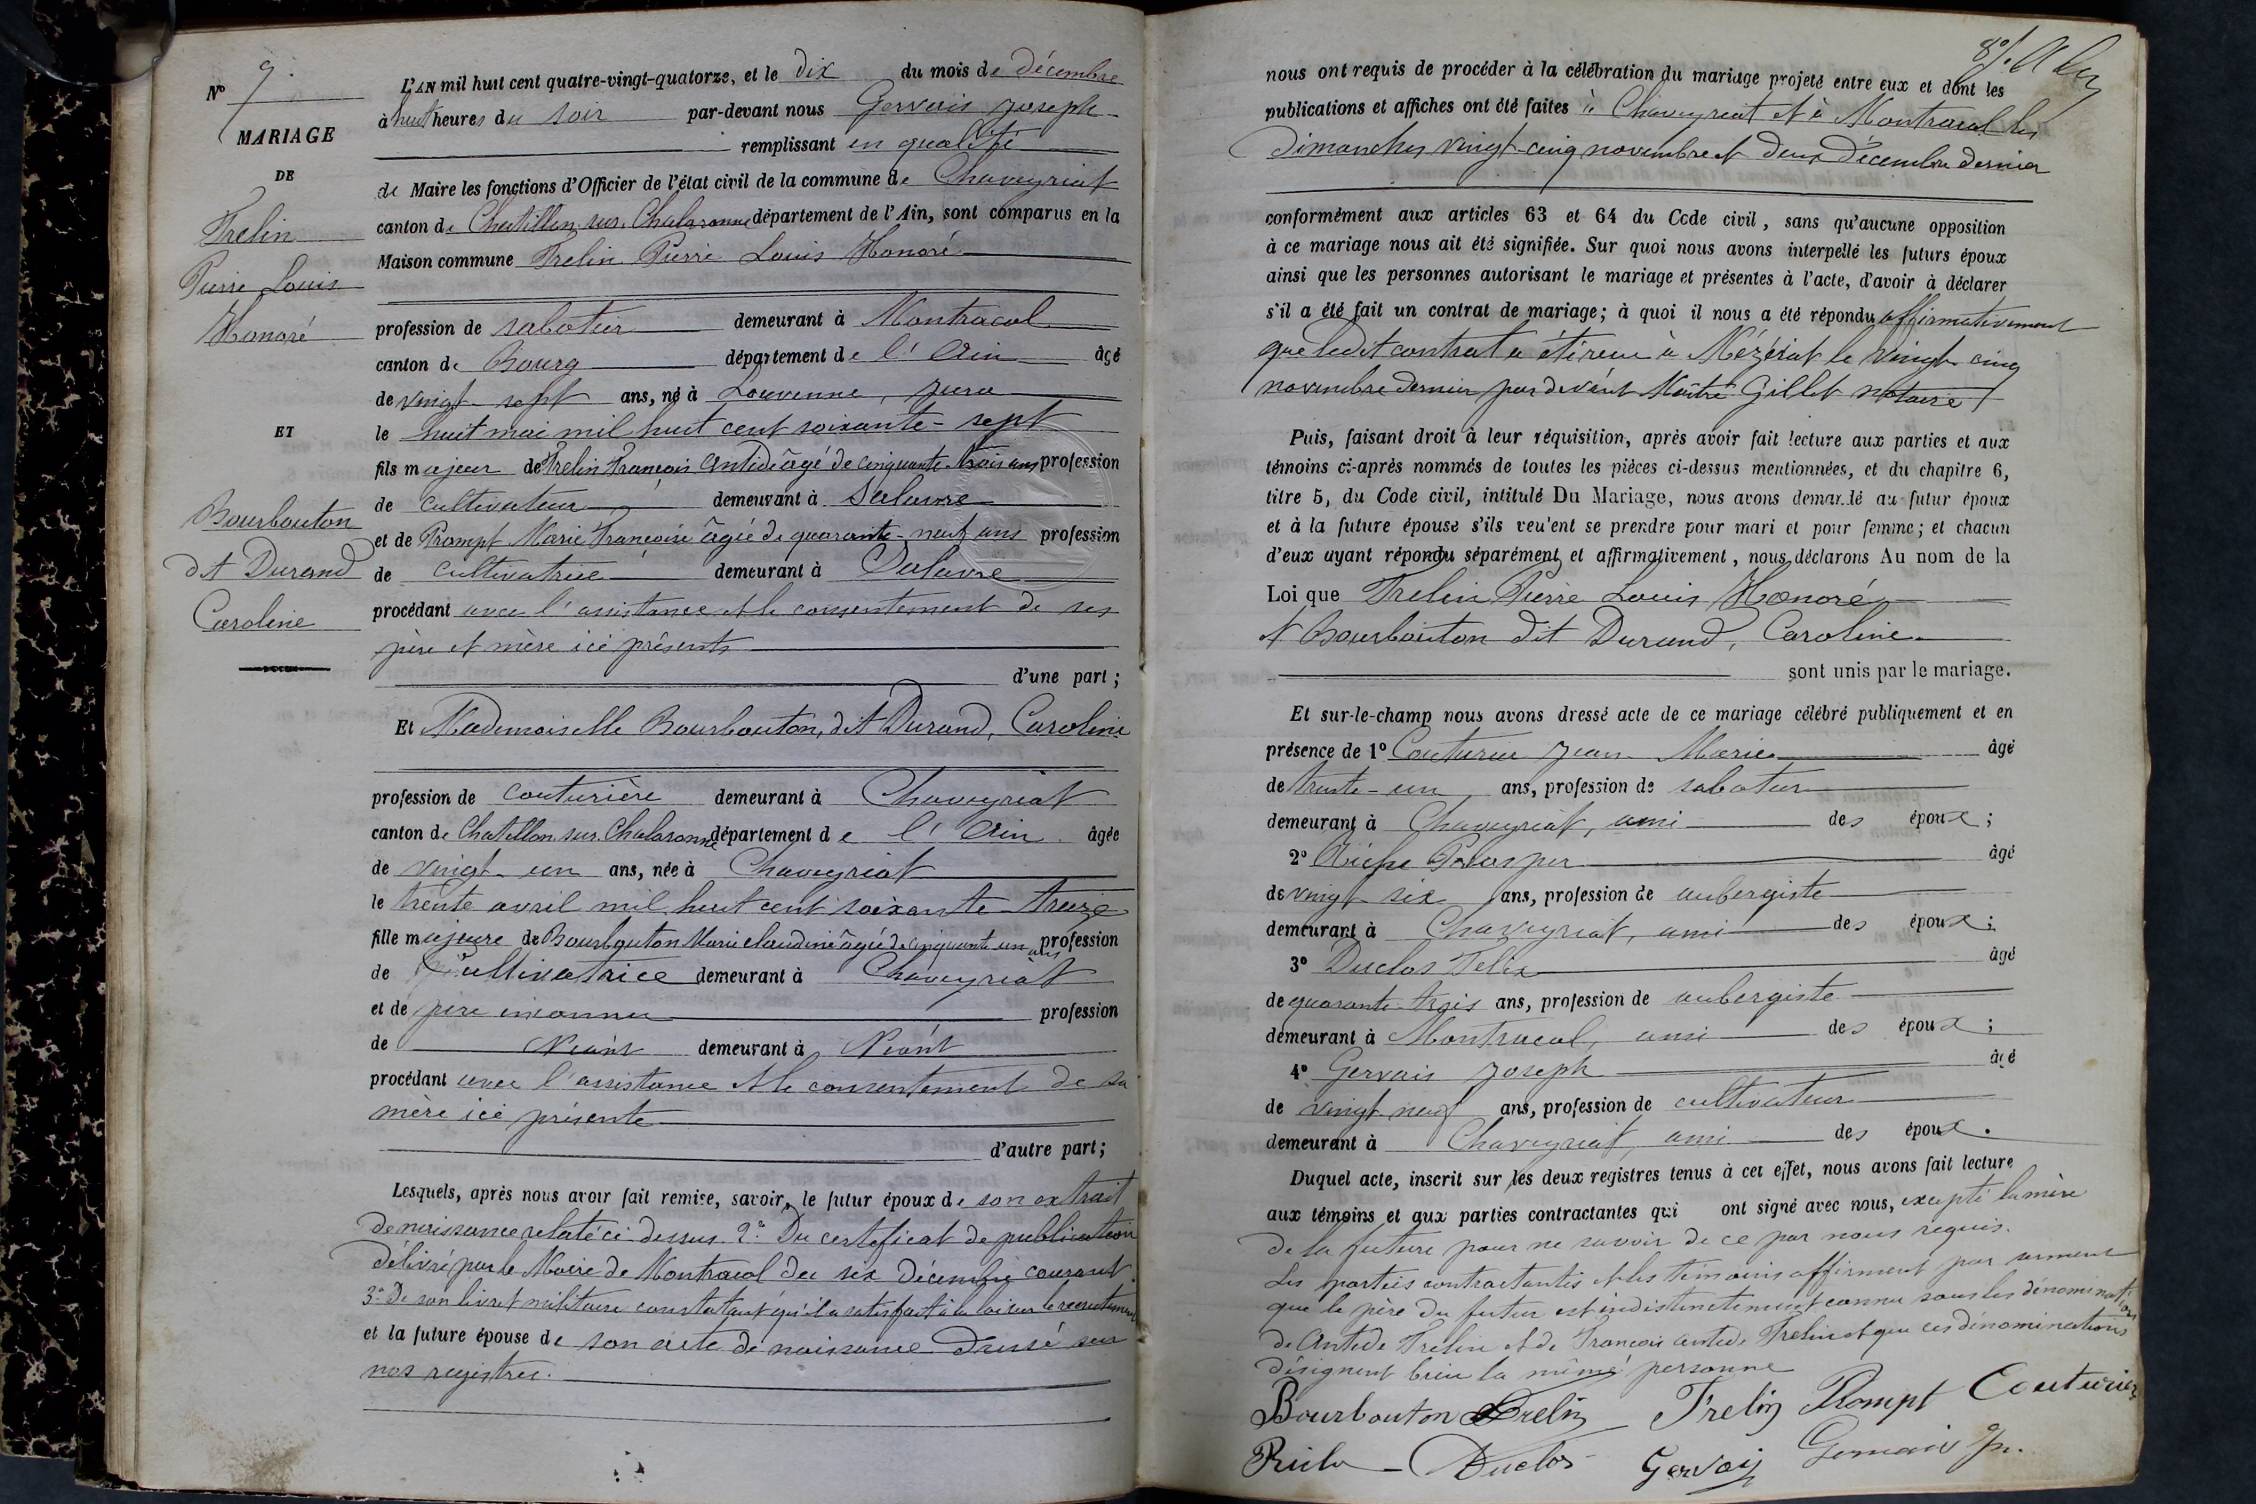 N° 9.
MARIAGE
DE
Trelin
Pierre Louis
Honoré
ET
Bourbouton
dit Durand
Caroline
L'AN mil huit cent quatre-vingt-quatorze, et le dix du mois de décembre
à huit heures du soir par-devant nous Gervais Joseph
remplissant en qualité
de Maire les fonctions d'Officier de l'état civil de la commune de Chaveyriat
canton de Chatillon-sur-Chalaronne département de l'Ain, sont comparus en la
Maison commune Trelin Pierre Louis Honoré
profession de sabotier demeurant à Montracol
canton de Bourg département de l'Ain âgé
de vingt-sept ans, né à Louvenne, Jura
le huit mai mil huit cent soixante-sept
fils majeur de Trelin François Antide âgé de cinquante trois ans profession
de cultivateur demeurant à Salavre
et de Prompt Marie Françoise âgée de quarante-neuf ans profession
de cultivatrice demeurant à Salavre
procédant avec l'assistance et le consentement de ses
père et mère ici présents
d'une part ;
Et Mademoiselle Bourbouton, dit Durand, Caroline
profession de couturière demeurant à Chaveyriat
canton de Chatillon-sur-Chalaronne département de l'Ain âgée
de vingt-un ans, née à Chaveyriat
le trente avril mil huit cent soixante-treize
fille majeure de Bourbouton Marie Claudine âgée de cinquante un ans profession
de Cultivatrice demeurant à Chaveyriat
et de père inconnu profession
de Néant demeurant à Néant
procédant avec l'assistance et le consentement de sa
mère ici présente
d'autre part ;
Lesquels, après nous avoir fait remise, savoir, le futur époux de son extrait
de naissance relaté ci-dessus 2° Du certificat de publication
délivré par le Maire de Montracol du six Décembre courant
3° De son livret militaire constatant qu'il a satisfait à la loi sur le recrutement
et la future épouse de son acte de naissance dressé sur
nos registres.
nous ont requis de procéder à la célébration du mariage projeté entre eux et dont les
publications et affiches ont été faites à Chaveyriat et à Montracol les
dimanches vingt-cinq novembre et deux Décembre dernier
conformément aux articles 63 et 64 du Code civil, sans qu'aucune opposition
à ce mariage nous ait été signifiée. Sur quoi nous avons interpellé les futurs époux
ainsi que les personnes autorisant le mariage et présentes à l'acte, d'avoir à déclarer
s'il a été fait un contrat de mariage; à quoi il nous a été répondu affirmativement
que ledit contrat a été reçu à Mézériat le vingt-cinq
novembre dernier par devant Maître Gillet notaire
Puis, faisant droit à leur réquisition, après avoir fait lecture aux parties et aux
témoins ci-après nommés de toutes les pièces ci-dessus mentionnées, et du chapitre 6,
titre 5, du Code civil, intitulé Du Mariage, nous avons demandé au futur époux
et à la future épouse s'ils veulent se prendre pour mari et pour femme; et chacun
d'eux ayant répondu séparément et affirmativement, nous déclarons Au nom de la
Loi que Trelin Pierre Louis Honoré
et Bourbouton dit Durand, Caroline
sont unis par le mariage.
Et sur-le-champ nous avons dressé acte de ce mariage célébré publiquement et en
présence de 1° Couturier Jean Marie âgé
de trente-un ans, profession de sabotier
demeurant à Chaveyriat, ami des époux ;
2° Riche Prosper âgé
de vingt six ans, profession de aubergiste
demeurant à Chaveyriat, ami des époux ;
3° Duclos Felix âgé
de quarante-trois ans, profession de aubergiste
demeurant à Montracol, ami des époux ;
4° Gervais Joseph âgé
de vingt neuf ans, profession de cultivateur
demeurant à Chaveyriat, ami des époux.
Duquel acte, inscrit sur les deux registres tenus à cet effet, nous avons fait lecture
aux témoins et aux parties contractantes qui ont signé avec nous, excepté la mère
de la future pour ne savoir de ce par nous requis.
Les parties contractantes et les témoins affirment par serment
que le père du futur est indistinctement connu sous les dénominations
de Antide Trelin et de François Antide Trelin et que ces dénominations
désignent bien la même personne
Bourbouton Trelin Trelin Prompt Couturier
Riche Duclos Gervais